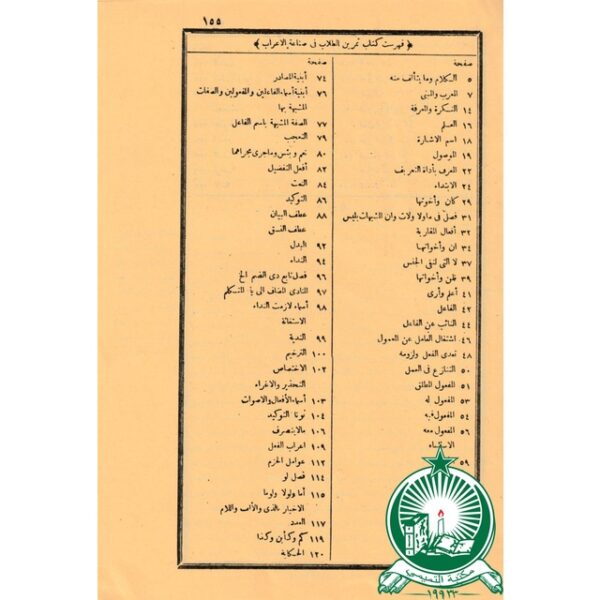 ١٥٥
﴿ فهرست كتاب تمرين الطلاب فى صناعة الاعراب ﴾
صفحة
٥ الكلام وما يتألف منه
٧ المعرب والمبنى
١٤ النكرة والمعرفة
١٦ العلم
١٨ اسم الاشارة
١٩ الموصول
٢٢ المعرف بأداة التعريف
٢٤ الابتداء
٢٩ كان وأخوتها
٣١ فصل فى ما ولا ولات وان المشبهات بليس
٣٢ أفعال المقاربة
٣٤ ان وأخواتها
٣٧ لا التى لنفى الجنس
٣٩ ظن وأخواتها
٤١ أعلم وأرى
٤٢ الفاعل
٤٤ النائب عن الفاعل
٤٦ اشتغال العامل عن المعمول
٤٨ تعدى الفعل ولزومه
٥٠ التنازع فى العمل
٥١ المفعول المطلق
٥٣ المفعول له
٥٤ المفعول فيه
٥٦ المفعول معه
الاستثناء
٥٩
صفحة
٧٤ أبنية المصادر
٧٦ أبنية أسماء الفاعلين والمفعولين والصفات
المشبهة بها
٧٧ الصفة المشبهة باسم الفاعل
٧٩ التعجب
٨٠ نعم وبئس وما جرى مجراهما
٨٢ أفعل التفضيل
٨٤ النعت
٨٦ التوكيد
٨٨ عطف البيان
عطف النسق
٩٢ البدل
٩٤ النداء
٩٦ فصل تابع ذى الضم الخ
٩٧ المنادى المضاف الى ياء المتكلم
٩٨ أسماء لازمت النداء
الاستغاثة
٩٩ الندبة
١٠٠ الترخيم
١٠٢ الاختصاص
التحذير والاغراء
١٠٣ أسماء الأفعال والاصوات
١٠٤ نونا التوكيد
١٠٦ مالا ينصرف
١٠٩ اعراب الفعل
١١٢ عوامل الجزم
١١٤ فصل لو
١١٥ أما ولولا ولوما
الاخبار بالذى والألف واللام
١١٧ العدد
١١٩ كم وكأين وكذا
١٢٠ الحكاية
مكتبة
١٩٩٣